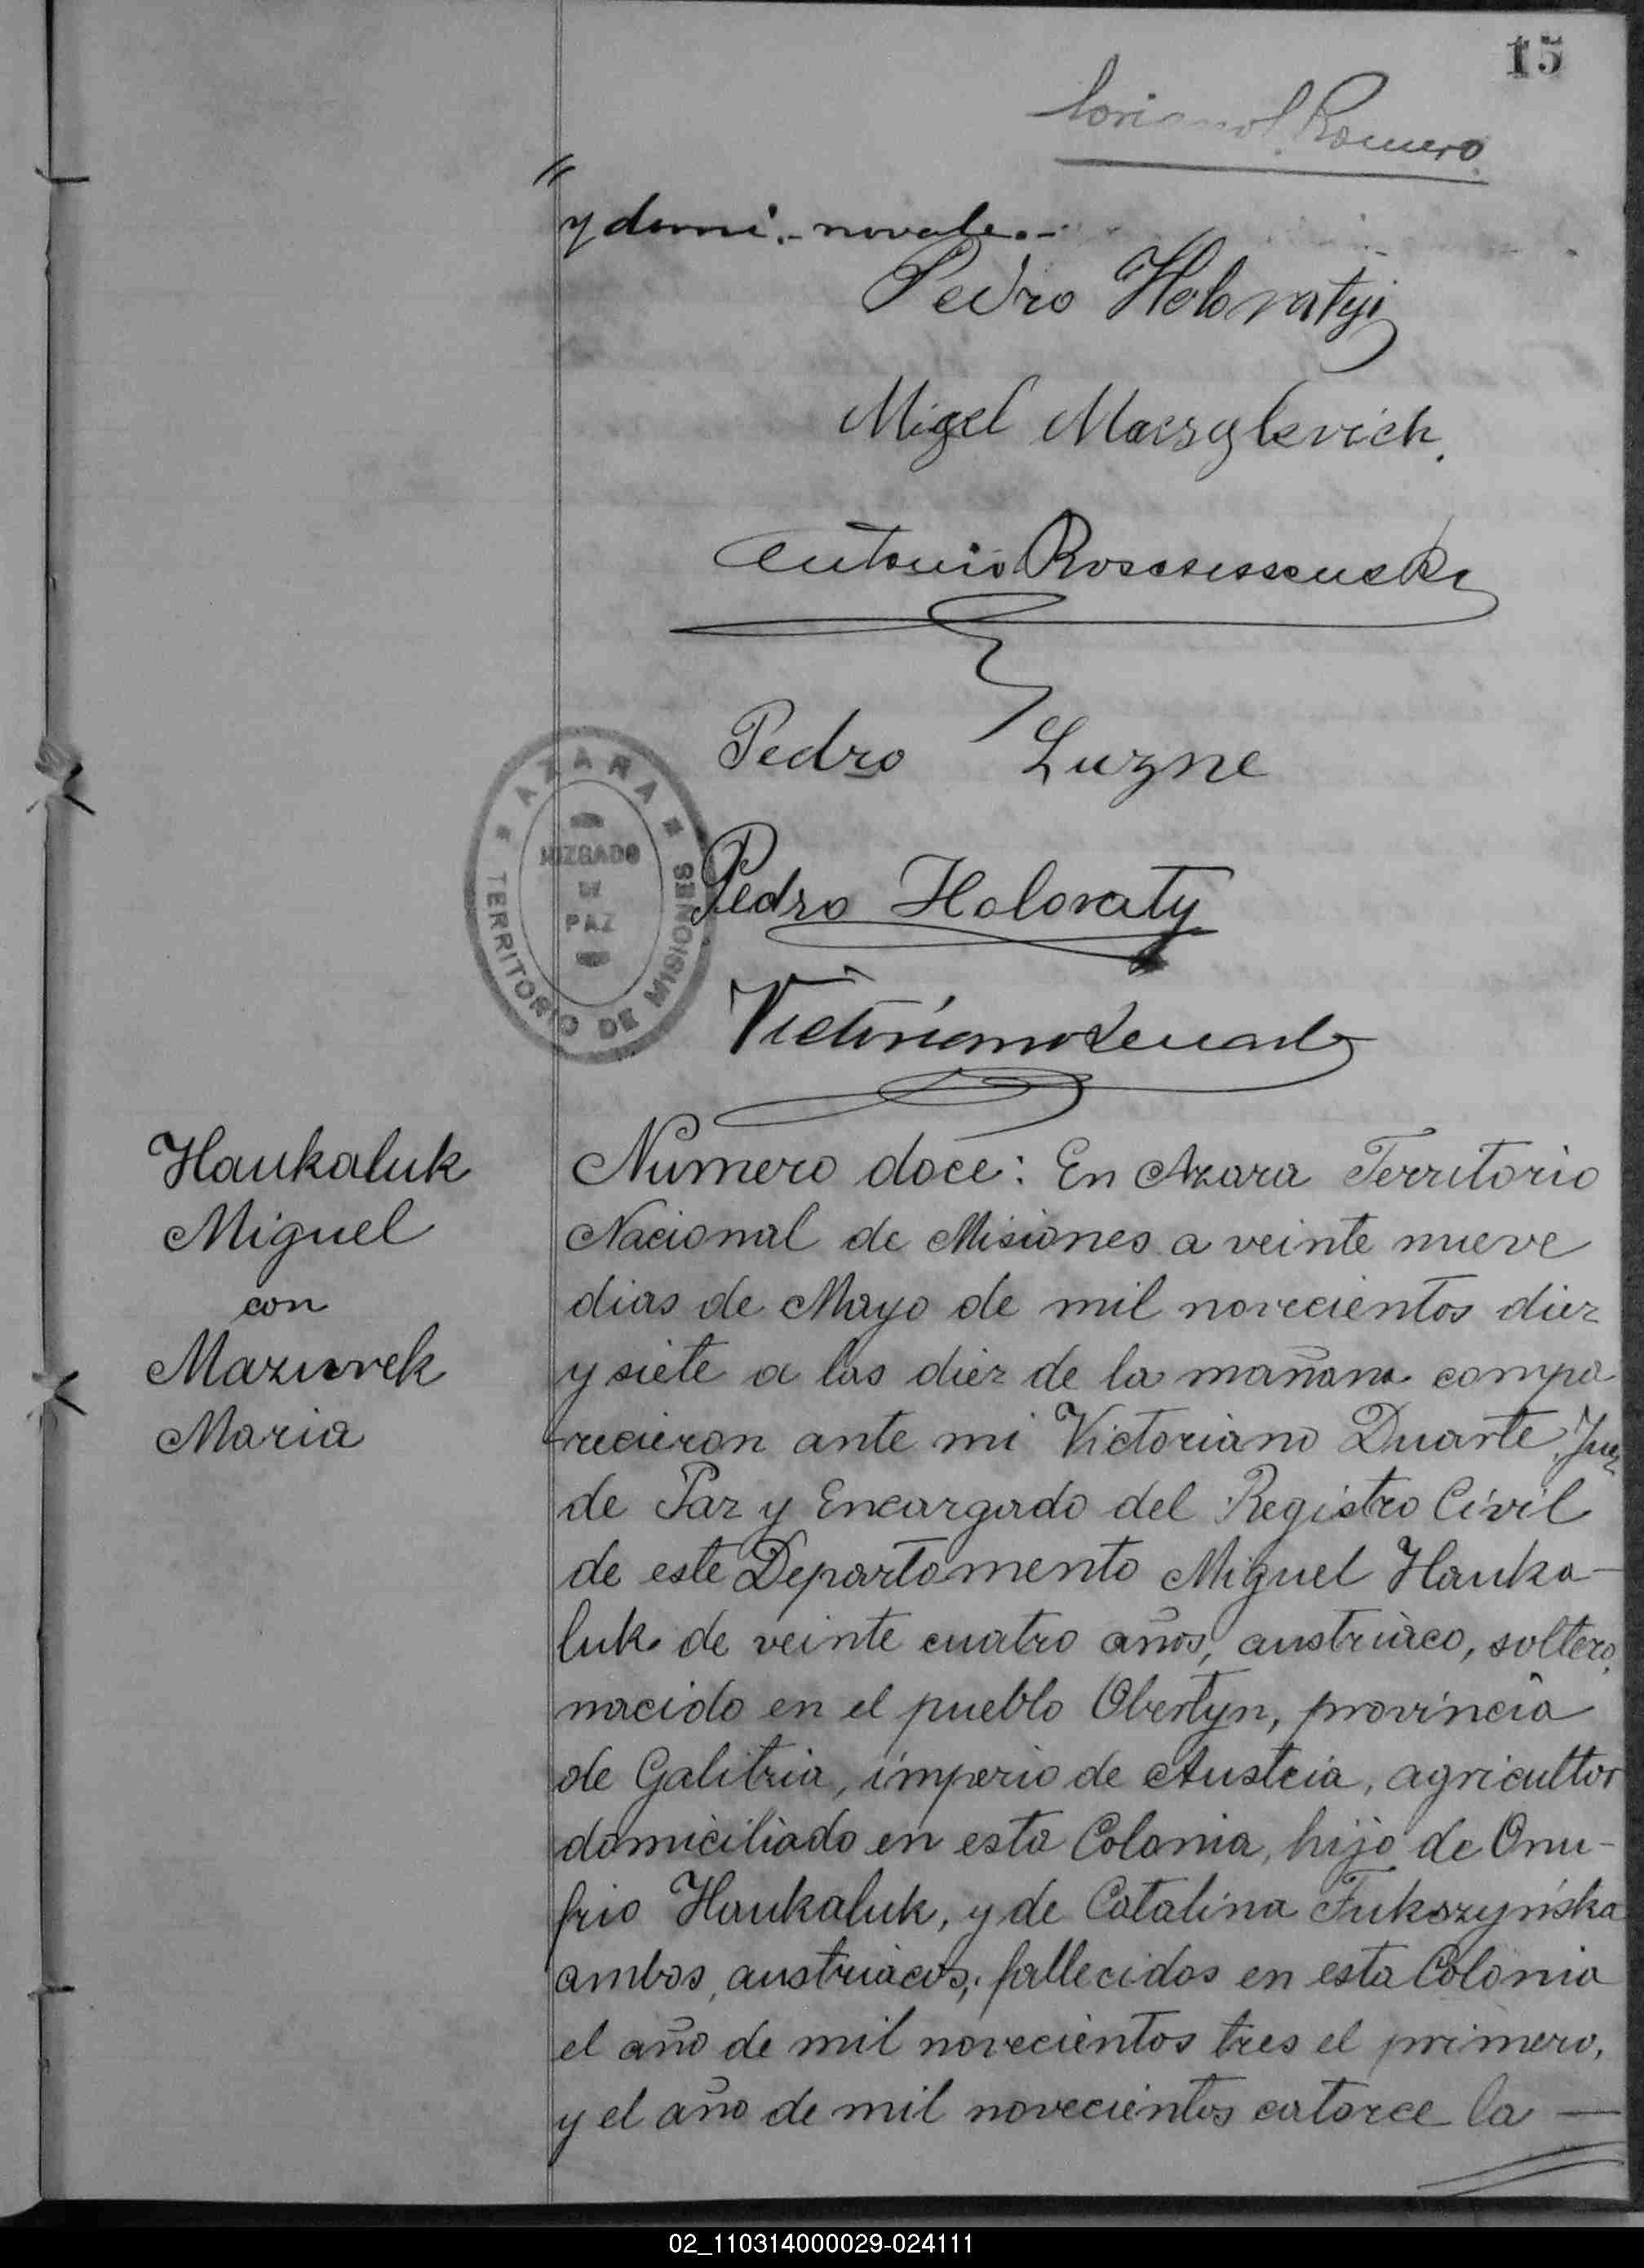 15
Romero.
y domi.- no vale.-
Pedro Holovatyi
Migel
Antonio
Pedro Luzne
AZARA
JUZGADO
DE
PAZ
TERRITORIO DE MISIONES
Pedro Holovaty
Victoriano Duarte
Haukaluk
Miguel
con
Mazurek
Maria
Numero doce: En Azara Territorio
Nacional de Misiones a veinte nueve
dias de Mayo de mil novecientos diez
y siete a las diez de la mañana compa
recieron ante mi Victoriano Duarte, Juez
de Paz y Encargado del Registro Civil
de este Departamento Miguel Hauka-
luk de veinte cuatro años, austriaco, soltero,
nacido en el pueblo Obertyn, provincia
de Galitzia, imperio de Austria, agricultor
domiciliado en esta Colonia, hijo de Onu-
frio Haukaluk, y de Catalina Fukszyńska
ambos, austriacos, fallecidos en esta Colonia
el año de mil novecientos tres el primero,
y el año de mil novecientos catorce la —
02_110314000029-024111